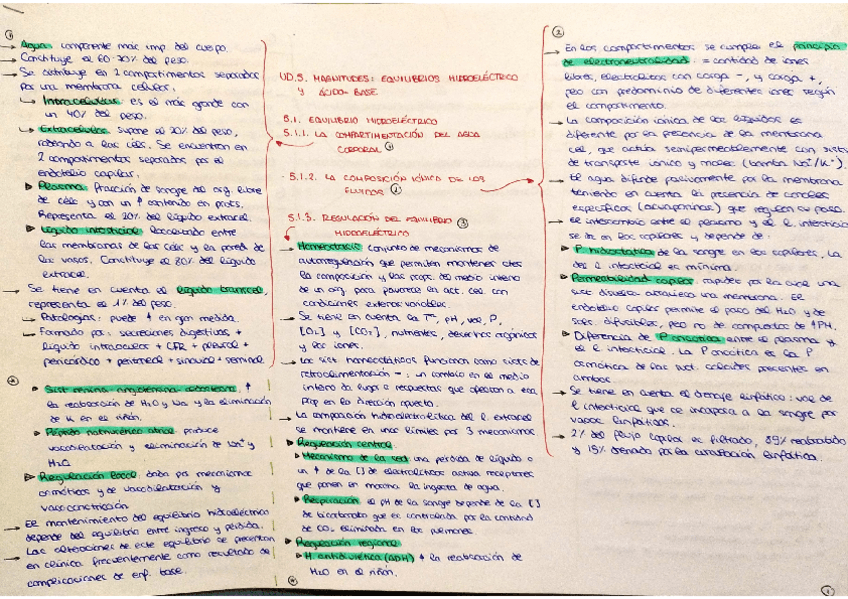 ①
→ Agua: componente más imp. del cuerpo.
→ Constituye el 60-70% del peso.
→ Se distribuye en 2 compartimentos separados
por una membrana celular:
↳ Intracelular: es el más grande con
un 40% del peso.
↳ Extracelular: supone el 20% del peso,
rodeando a las céls. Se encuentran en
2 compartimentos separados por el
endotelio capilar:
▸ Plasma: fracción de sangre del org. libre
de céls y con un ↑ contenido en prots.
Representa el 20% del líquido extracel.
▸ Líquido intersticial: localizado entre
las membranas de las céls y la pared de
los vasos. Constituye el 80% del líquido
extracel.
→ Se tiene en cuenta el líquido transcel,
representa el 1% del peso.
→ Patologías: puede ↑ en gran medida.
→ Formado por: secreciones digestivas +
líquido intraocular + CFR + pleural +
pericárdico + peritoneal + sinovial + seminal
④
▸ Sist. renina-angiotensina-aldosterona: ↑
la reabsorción de H₂O y Na y la eliminación
de K en el riñón.
▸ Péptido natriurético atrial: produce
vasodilatación y eliminación de Na⁺ y
H₂O
▸ Regulación local: dada por mecanismos
osmóticos y de vasodilatación y
vasoconstricción
→ El mantenimiento del equilibrio hidroeléctrico
depende del equilibrio entre ingreso y pérdida.
→ Las alteraciones de este equilibrio se presentan
en clínica frecuentemente como resultado de
complicaciones de enf. base.
UD.5. MAGNITUDES: EQUILIBRIOS HIDROELÉCTRICO
Y ÁCIDO-BASE
5.1. EQUILIBRIO HIDROELÉCTRICO
5.1.1. LA COMPARTIMENTACIÓN DEL AGUA
CORPORAL ①
5.1.2. LA COMPOSICIÓN IÓNICA DE LOS
FLUIDOS ②
5.1.3. REGULACIÓN DEL EQUILIBRIO ③
HIDROELÉCTRICO
→ Homeostasis: conjunto de mecanismos de
autorregulación que permiten mantener ctes
la composición y las props. del medio interno
de un org. para favorecer la act. cel. con
condiciones externas variables.
→ Se tiene en cuenta la Tª, pH, vol, P,
[O₂] y [CO₂], nutrientes, desechos orgánicos
y los iones.
→ Los sist. homeostáticos funcionan como sists de
retroalimentación −: un cambio en el medio
interno da lugar a respuestas que afectan a esa
prop en la dirección opuesta.
→ La composición hidroelectrolítica del l. extracel
se mantiene en unos límites por 3 mecanismos
▸ Regulación central
▸ Mecanismo de la sed: una pérdida de líquido o
un ↑ de la [] de electrolitos activa receptores
que ponen en marcha la ingesta de agua.
▸ Respiración: el pH de la sangre depende de la []
de bicarbonato que es controlada por la cantidad
de CO₂ eliminada en los pulmones
▸ Regulación regional
▸ H. antidiurética (ADH) ↑ la reabsorción de
H₂O en el riñón.
④
②
→ En los compartimentos se cumple el principio
de electroneutralidad: = cantidad de iones
libres, electrolitos con carga -, y carga +,
pero con predominio de diferentes iones según
el compartimento.
→ La composición iónica de los líquidos es
diferente por la presencia de la membrana
cel, que actúa semipermeablemente con sists
de transporte iónico y molec (bomba Na⁺/K⁺).
→ El agua difunde pasivamente por la membrana
teniendo en cuenta la presencia de canales
específicos (acuaporinas) que regulan su paso.
→ El intercambio entre el plasma y el l. intersticial
se da en los capilares y depende de:
▸ P. hidrostática de la sangre en los capilares, la
del l. intersticial es mínima.
▸ Permeabilidad capilar: rapidez por la cual una
sust. disuelta atraviesa una membrana. El
endotelio capilar permite el paso del H₂O y de
sols. difusibles, pero no de compuestos de ↑PM.
▸ Diferencia de P. oncótica entre el plasma y
el l. intersticial. La P oncótica es la P
osmótica de las sust. coloides presentes en
ambos
→ Se tiene en cuenta el drenaje linfático: vol de
l. intersticial que se incorpora a la sangre por
vasos linfáticos.
→ 2% del flujo capilar es filtrado, 85% reabsorbido
y 15% drenado por la circulación linfática.
①